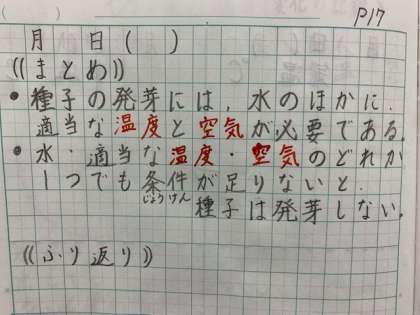 P17
月 日( )
((まとめ))
•種子の発芽には,水のほかに,
適当な温度と空気が必要である。
•水・適当な温度・空気のどれか
1つでも条件が足りないと,
じょうけん
種子は発芽しない。
((ふり返り))